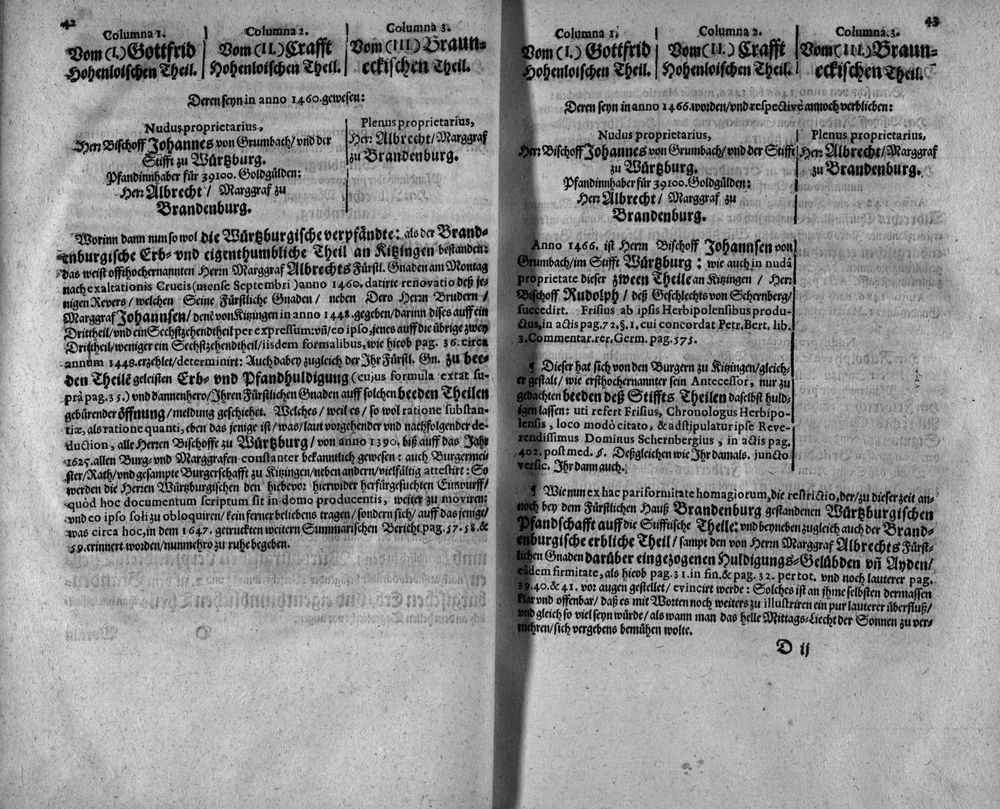 42
Columna 1. Columna 2. Columna 3.
Vom (I.) Gottfrid Vom (II.) Crafft Vom (III) Braun-
Hohenloischen Theil. Hohenloischen Theil. eckischen Theil.
Deren seyn in anno 1460. gewesen:
Nudus proprietarius, Plenus proprietarius,
Herr Bischoff Johannes von Grumbach/ und der Herr Albrecht/ Marggraf
Stifft zu Würtzburg. zu Brandenburg.
Pfandinnhaber für 39100. Goldgülden:
Herr Albrecht/ Marggraf zu
Brandenburg.
Worinn dann nun so wol die Würtzburgische verpfändte: als der Brand-
enburgische Erb- und eigenthumbliche Theil an Kitzingen bestanden:
das weist offthochernannten Herrn Marggraf Albrechts Fürstl. Gnaden am Montag
nach exaltationis Crucis (mense Septembri) anno 1460. datirte renovatio deß je-
nigen Revers/ welchen Seine Fürstliche Gnaden/ neben Dero Herrn Brudern/
Marggraf Johannsen/ denē von Kitzingen in anno 1448. gegeben/ darinn dises auff ein
Drittheil/ und ein Sechstzehendtheil per expressum: uñ eo ipso, jenes auff die übrige zwey
Drittheil/ weniger ein Sechstzehendtheil/ iisdem formalibus, wie hieob pag. 36. circa
annum 1448. erzehlet/ determinirt: Auch dabey zugleich der Ihr Fürstl. Gn. zu bee-
den Theile geleisten Erb- und Pfandhuldigung (cujus formula extat su-
prà pag. 35.) und dannenhero/ Ihren Fürstlichen Gnaden auff solchen beeden Theilen
gebürender öffnung/ meldung geschiehet. Welches/ weil es/ so wol ratione substan-
tiæ, als ratione quanti, eben das jenige ist/ was/ laut vorgehender und nachfolgender de-
duction, alle Herren Bischoffe zu Würtzburg/ von anno 1390. biß auff das Jahr
1625. allen Burg- und Marggrafen constanter bekanntlich gewesen: auch Burgermei-
ster/ Rath/ und gesampte Burgerschafft zu Kitzingen/ neben andern/ vielfältig attestirt: So
werden die Herren Würtzburgischen den hiebevor hierwider herfürgesuchten Einwurff/
quòd hoc documentum scriptum sit in domo producentis, weiter zu moviren:
und eo ipso soli zu obloquiren/ kein ferner beliebens tragen/ sondern sich/ auff das jenige/
was circa hoc, in dem 1647. getruckten weitern Summarischen Bericht, pag. 57. 58. &
59. erinnert worden/ nunmehro zu ruhe begeben.
43
Columna 1. Columna 2. Columna 3.
Vom (I.) Gottfrid Vom (II.) Crafft Vom (III.) Braun-
Hohenloischen Theil. Hohenloischen Theil. eckischen Theil.
Deren seyn in anno 1466. worden/ und respectivè annoch verblieben:
Nudus proprietarius, Plenus proprietarius,
Herr Bischoff Johannes von Grumbach/ und der Stifft Herr Albrecht/ Marggraf
zu Würtzburg. zu Brandenburg.
Pfandinnhaber für 39100. Goldgülden:
Herr Albrecht/ Marggraf zu
Brandenburg.
Anno 1466. ist Herrn Bischoff Johannsen von
Grumbach/ im Stifft Würtzburg: wie auch in nudâ
proprietate dieser zween Theile an Kitzingen/ Herr
Bischoff Rudolph/ deß Geschlechts von Schernberg/
succedirt. Frisius ab ipsis Herbipolensibus produ-
ctus, in actis pag. 72. §. 1. cui concordat Petr. Bert. lib.
3. Commentar. rer. Germ. pag. 575.
¶ Dieser hat sich von den Burgern zu Kitzingen/ gleich-
er gestalt/ wie ersthochernannter sein Antecessor, nur zu
gedachten beeden deß Stiffts Theilen daselbst huld-
igen lassen: uti refert Frisius, Chronologus Herbipo-
lensis, loco modò citato, & adstipulatur ipse Reve-
rendissimus Dominus Schernbergius, in actis pag.
402. post med. §. Deßgleichen wie Ihr damals. juncto
versic. Ihr dann auch.
¶ Wie nun ex hac pariformitate homagiorum, die restrictio, der/ zu dieser zeit an-
noch bey dem Fürstlichen Hauß Brandenburg gestandenen Würtzburgischen
Pfandschafft auff die Stifftische Theile: und beyneben zugleich auch der Brand-
enburgische erbliche Theil/ sampt den von Herrn Marggraf Albrechts Fürst-
lichen Gnaden darüber eingezogenen Huldigungs-Gelübden uñ Ayden/
eâdem firmitate, als hieob pag. 31. in fin. & pag. 32. per tot. und noch lauterer pag.
39. 40. & 41. vor augen gestellet/ evincirt werde: Solches ist an ihme selbsten dermassen
klar und offenbar/ daß es mit Worten noch weiters zu illustriren ein pur lauterer überfluß/
und gleich so viel seyn würde/ als wann man das helle Mittags-Liecht der Sonnen zu ver-
mehren/ sich vergebens bemühen wolte.
D ij